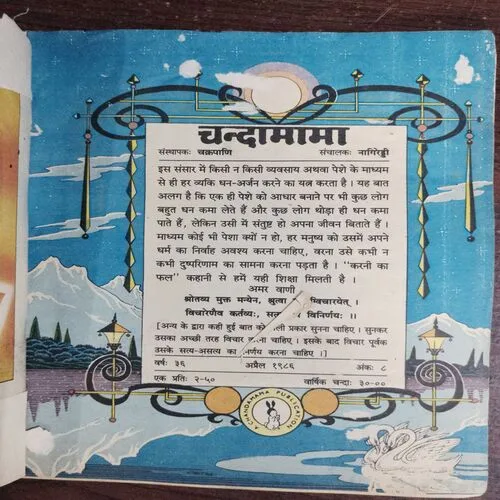 चन्दामामा
संस्थापक: चक्रपाणि संचालक: नागिरेड्डी
इस संसार में किसी न किसी व्यवसाय अथवा पेशे के माध्यम
से ही हर व्यकि धन-अर्जन करने का यत्न करता है। यह बात
अलग है कि एक ही पेशे को आधार बनाने पर भी कुछ लोग
बहुत धन कमा लेते हैं और कुछ लोग थोड़ा ही धन कमा
पाते हैं, लेकिन उसी में संतुष्ट हो अपना जीवन बिताते हैं।
माध्यम कोई भी पेशा क्यों न हो, हर मनुष्य को उसमें अपने
धर्म का निर्वाह अवश्य करना चाहिए, वरना उसे कभी न
कभी दुष्परिणाम का सामना करना पड़ता है। "करनी का
फल" कहानी से हमें यही शिक्षा मिलती है।
अमर वाणी
श्रोतव्य मुक्त मन्येन, श्रुत्वा
विचारेणैव कर्तव्य:, विनिर्णय:।।
[अन्य के द्वारा कही हुई बात को प्रकार सुनना चाहिए। सुनकर
उसका अच्छी तरह विचार करना चाहिए। इसके बाद विचार पूर्वक
उसके सत्य-असत्य का करना चाहिए।]
वर्ष: ३६ अप्रैल १९८६ अंक: ८
एक प्रति: २-५० वार्षिक चन्दा: ३०-००
A CHANDAMAMA PUBLICATION